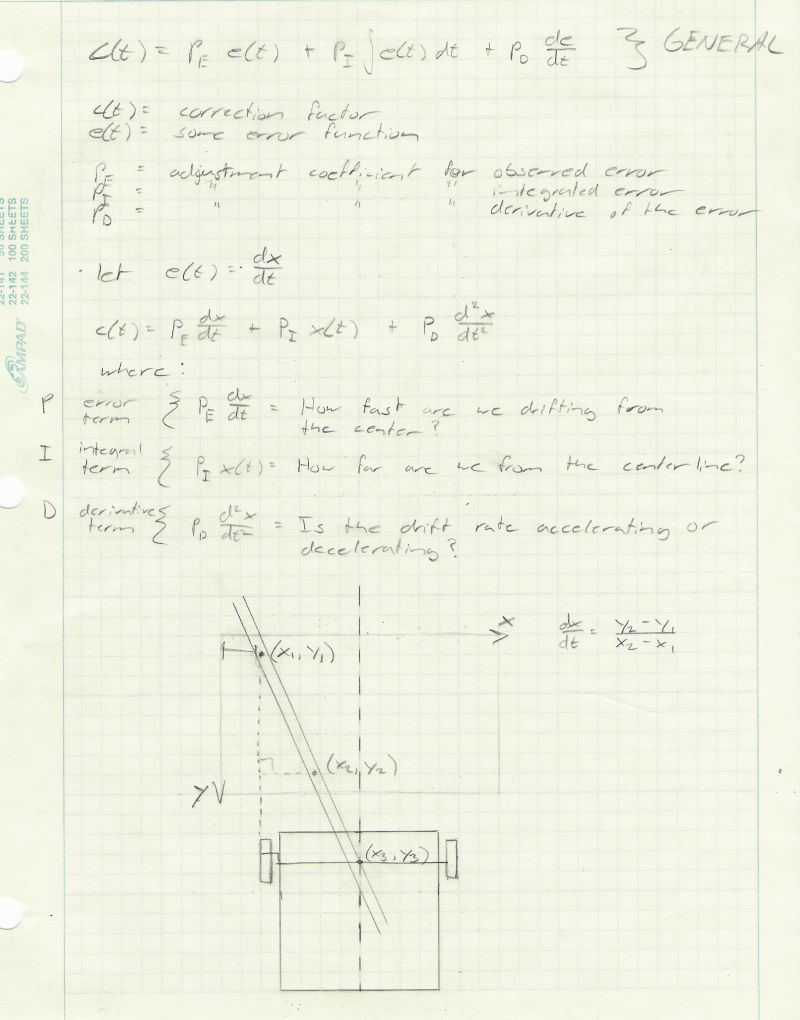 c(t) = P_E e(t) + P_I ∫e(t) dt + P_D de/dt } GENERAL
c(t) = correction factor
e(t) = some error function
P_E = adjustment coefficient for observed error
P_I = " " " integrated error
P_D = " " " derivative of the error
· let e(t) = dx/dt
c(t) = P_E dx/dt + P_I x(t) + P_D d²x/dt²
where:
P error term { P_E dx/dt = How fast are we drifting from
the center?
I integral term { P_I x(t) = How far are we from the center line?
D derivative term { P_D d²x/dt² = Is the drift rate accelerating or
decelerating?
x
dx/dt = y₂-y₁/x₂-x₁
(x₁, y₁)
(x₂, y₂)
y
(x₃, y₃)
22-142 100 SHEETS
22-144 200 SHEETS
AMPAD